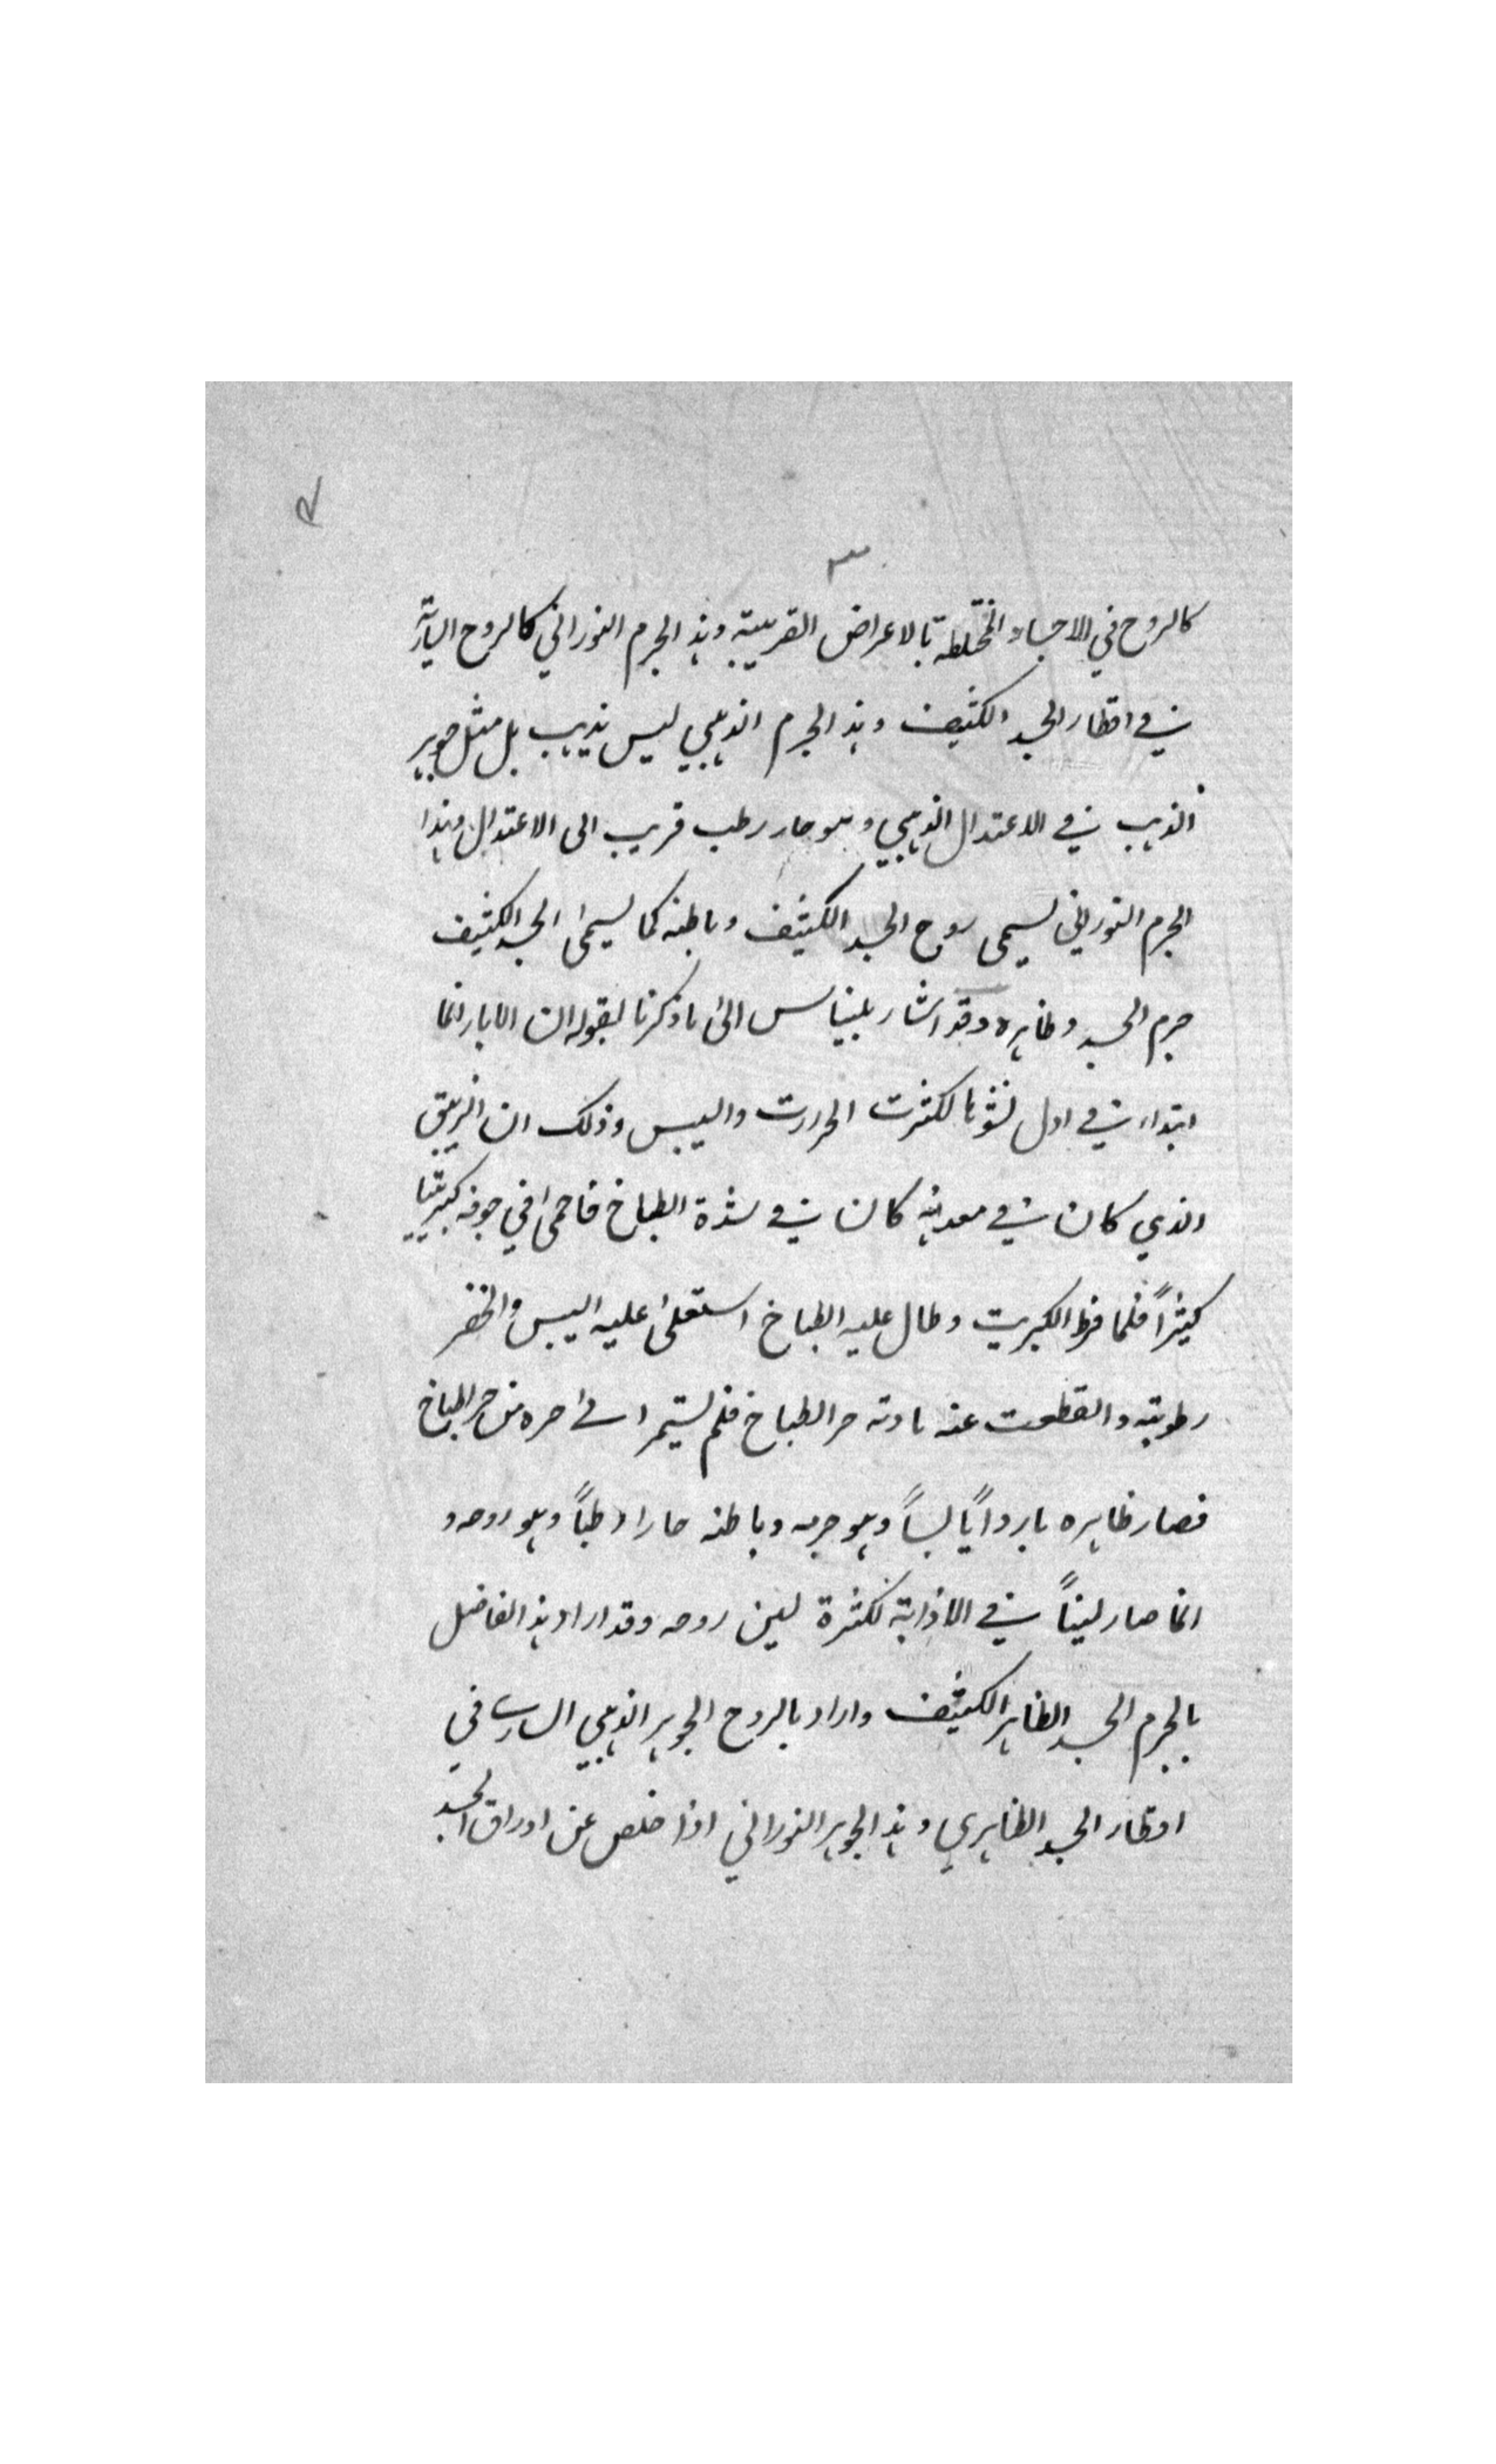 ٣
كالروح في الاجساد المختلطة بالاعراض القريبة وهذ الجرم النوراني كالروح السارية
في اقطار الجسد الكثيف وهذ الجرم الذهبي ليس بذهب بل مثل جوهر
الذهب في الاعتدال الذهبي وهو حار رطب قريب الى الاعتدال وهذا
الجرم النوراني يسمى روح الجسد الكثيف وباطنه كما يسمى الجسد الكثيف
جرم الجسد وظاهره وقد اشار بليناس الى ما ذكرنا بقوله ان الابار انما
ابتداء في اول نشوها لكثرت الحررت واليبس وذلك ان الزيبق
الذي كان في معدنه كان في شدة الطباخ فاحمى في جوفه كبريتيا
كثيراً فلما فرط الكبريت وطال عليه الطباخ استعلى عليه اليبس والخفر
رطوبته وانقطعت عنه مادته حر الطباخ فلم يستمر ا في حره من حر الطباخ
فصار ظاهره بارداً يابساً وهو جرمه وباطنه حارا رطباً وهو روحه و
انما صار ليناً في الاذابة لكثرة لين روحه وقد اراد هذ الفاضل
بالجرم الجسد الظاهر الكثيف واراد بالروح الجوهر الذهبي الساري في
اقطار الجسد الظاهري وهذ الجوهر النوراني اذا خلص عن اوراق الجسد